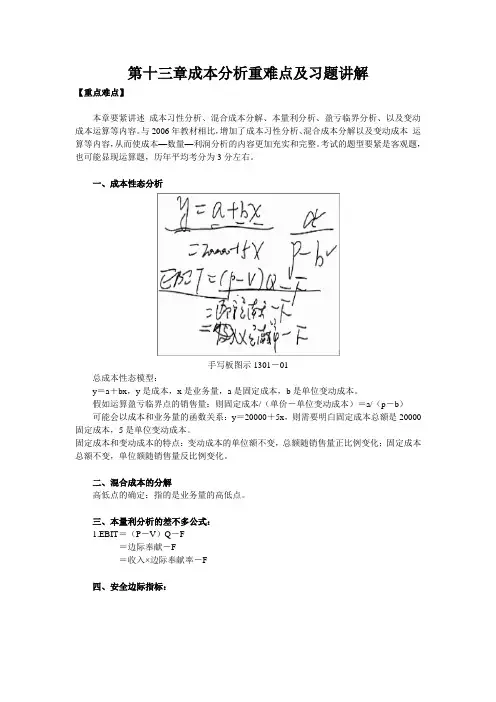 第十三章成本分析重难点及习题讲解
【重点难点】
本章要紧讲述 成本习性分析、混合成本分解、本量利分析、盈亏临界分析、以及变动
成本运算等内容。与2006年教材相比，增加了成本习性分析、混合成本分解以及变动成本 运
算等内容，从而使成本—数量—利润分析的内容更加充实和完整。考试的题型要紧是客观题，
也可能显现运算题，历年平均考分为3分左右。
一、成本性态分析
y=a+bx a
p-b
EBIT=(p-V)Q-F
手写板图示1301－01
总成本性态模型：
y＝a＋bx，y是成本，x是业务量，a是固定成本，b是单位变动成本。
假如运算盈亏临界点的销售量：则固定成本/（单价－单位变动成本）＝a/（p－b）
可能会以成本和业务量的函数关系：y＝20000＋5x，则需要明白固定成本总额是20000
固定成本，5是单位变动成本。
固定成本和变动成本的特点：变动成本的单位额不变，总额随销售量正比例变化；固定成本
总额不变，单位额随销售量反比例变化。
二、混合成本的分解
高低点的确定：指的是业务量的高低点。
三、本量利分析的差不多公式：
1.EBIT＝（P－V）Q－F
＝边际奉献－F
＝收入×边际奉献率－F
四、安全边际指标：